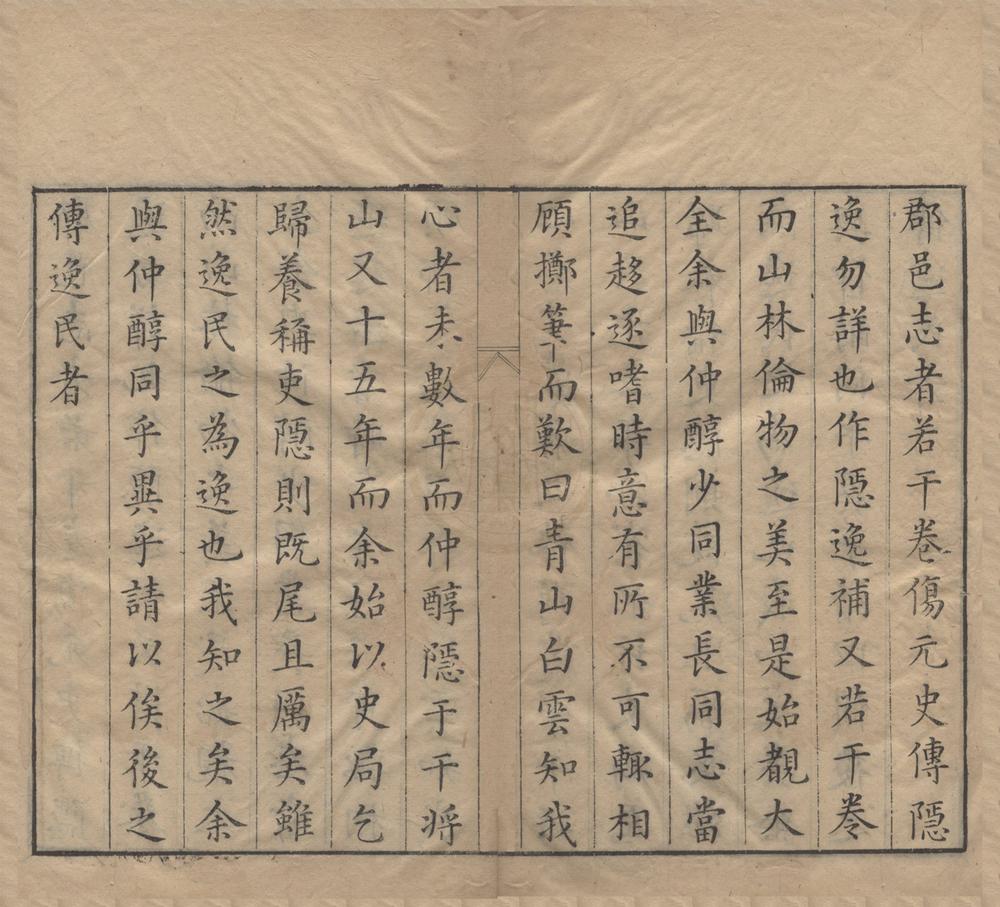 郡邑志者若干卷傷元史傳隱
逸勿詳也作隱逸補又若干卷
而山林倫物之美至是始覩大
全余與仲醇少同業長同志當
追趍逐嗜時意有所不可輙相
顧擲筆而歎曰青山白雲知我
心者未數年而仲醇隱于干將
山又十五年而余始以史局乞
歸養稱吏隱則既尾且厲矣雖
然逸民之為逸也我知之矣余
與仲醇同乎異乎請以俟後之
傳逸民者